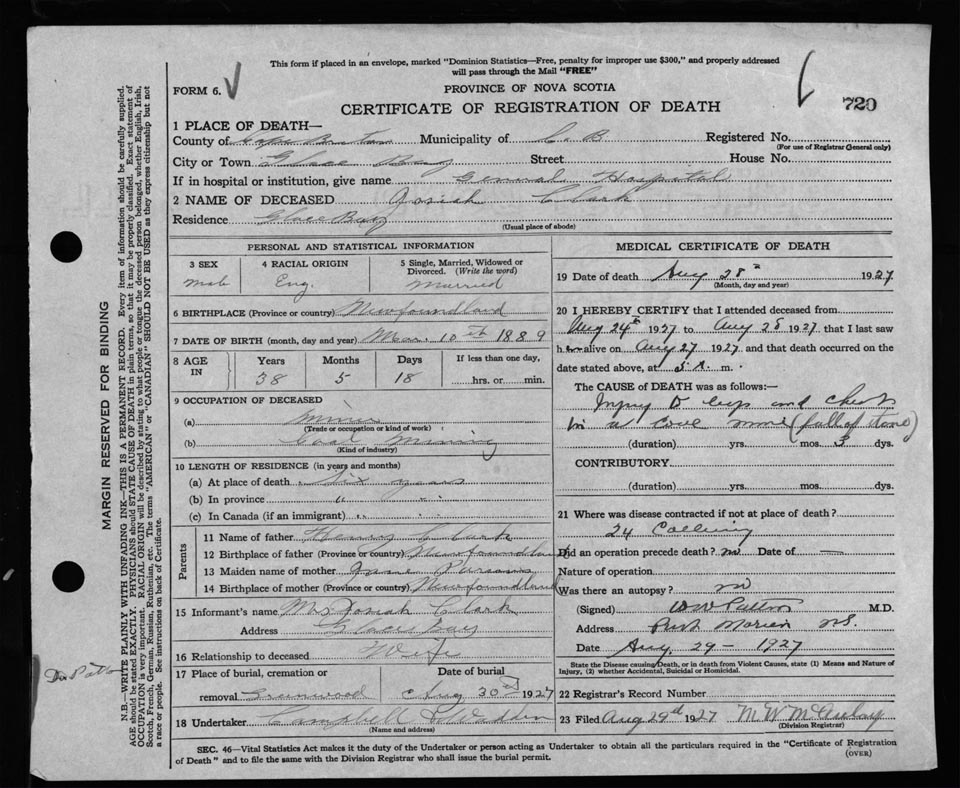 This form if placed in an envelope, marked "Dominion Statistics—Free, penalty for improper use $300," and properly addressed
will pass through the Mail "FREE"
FORM 6.
PROVINCE OF NOVA SCOTIA
CERTIFICATE OF REGISTRATION OF DEATH
720
1 PLACE OF DEATH—
County of Cape Breton Municipality of C. B Registered No.
(For use of Registrar General only)
City or Town Glace Bay Street House No.
If in hospital or institution, give name General Hospital
2 NAME OF DECEASED Josiah Clark
Residence Glace Bay
(Usual place of abode)
PERSONAL AND STATISTICAL INFORMATION
3 SEX
Male
4 RACIAL ORIGIN
Eng.
5 Single, Married, Widowed or
Divorced. (Write the word)
Married
6 BIRTHPLACE (Province or country) Newfoundland
7 DATE OF BIRTH (month, day and year) Mar. 10th 1889
8 AGE IN
Years Months Days If less than one day,
38 5 18 hrs. or min.
9 OCCUPATION OF DECEASED
(a) Miner
(Trade or occupation or kind of work)
(b) Coal Mining
(Kind of industry)
10 LENGTH OF RESIDENCE (in years and months)
(a) At place of death Six years
(b) In province " "
(c) In Canada (if an immigrant) " "
Parents
11 Name of father Henry Clark
12 Birthplace of father (Province or country) Newfoundland
13 Maiden name of mother Jane Parsons
14 Birthplace of mother (Province or country) Newfoundland
15 Informant's name Mrs Josiah Clark
Address Glace Bay
16 Relationship to deceased Wife
17 Place of burial, cremation or Date of burial
removal Greenwood Aug 30th 1927
18 Undertaker Campbell
(Name and address)
MEDICAL CERTIFICATE OF DEATH
19 Date of death Aug 28th 1927
(Month, day and year)
20 I HEREBY CERTIFY that I attended deceased from
Aug 24th 1927 to Aug 28 1927 that I last saw
him alive on Aug 27 1927 and that death occurred on the
date stated above, at 5 A. m.
The CAUSE of DEATH was as follows:—
Injury to legs and chest
in a coal mine (fall of stone)
(duration) yrs. mos. 3 dys.
CONTRIBUTORY
(duration) yrs. mos. dys.
21 Where was disease contracted if not at place of death?
24 Colliery
Did an operation precede death? no Date of —
Nature of operation
Was there an autopsy? no
(Signed) W W Patton M.D.
Address Port Morien N.S.
Date Aug, 29 - 1927
State the Disease causing Death, or in death from Violent Causes, state (1) Means and Nature of
Injury, (2) whether Accidental, Suicidal or Homicidal.
22 Registrar's Record Number
23 Filed Aug 29th 1927
(Division Registrar)
SEC. 46—Vital Statistics Act makes it the duty of the Undertaker or person acting as Undertaker to obtain all the particulars required in the "Certificate of Registration
of Death" and to file the same with the Division Registrar who shall issue the burial permit.
(OVER)
MARGIN RESERVED FOR BINDING
N.B.—WRITE PLAINLY WITH UNFADING INK—THIS IS A PERMANENT RECORD. Every item of information should be carefully supplied.
AGE should be stated EXACTLY. PHYSICIANS should STATE CAUSE OF DEATH in plain terms, so that it may be properly classified. Exact statement of
OCCUPATION is very important. RACIAL ORIGIN will be described by stating to what people or tongue the deceased person belonged, whether English, Irish,
Scotch, French, German, Russian, Ruthenian, etc. The terms "AMERICAN" or "CANADIAN" SHOULD NOT BE USED as they express citizenship but not
a race or people. See instructions on back of Certificate.
Dr Patton